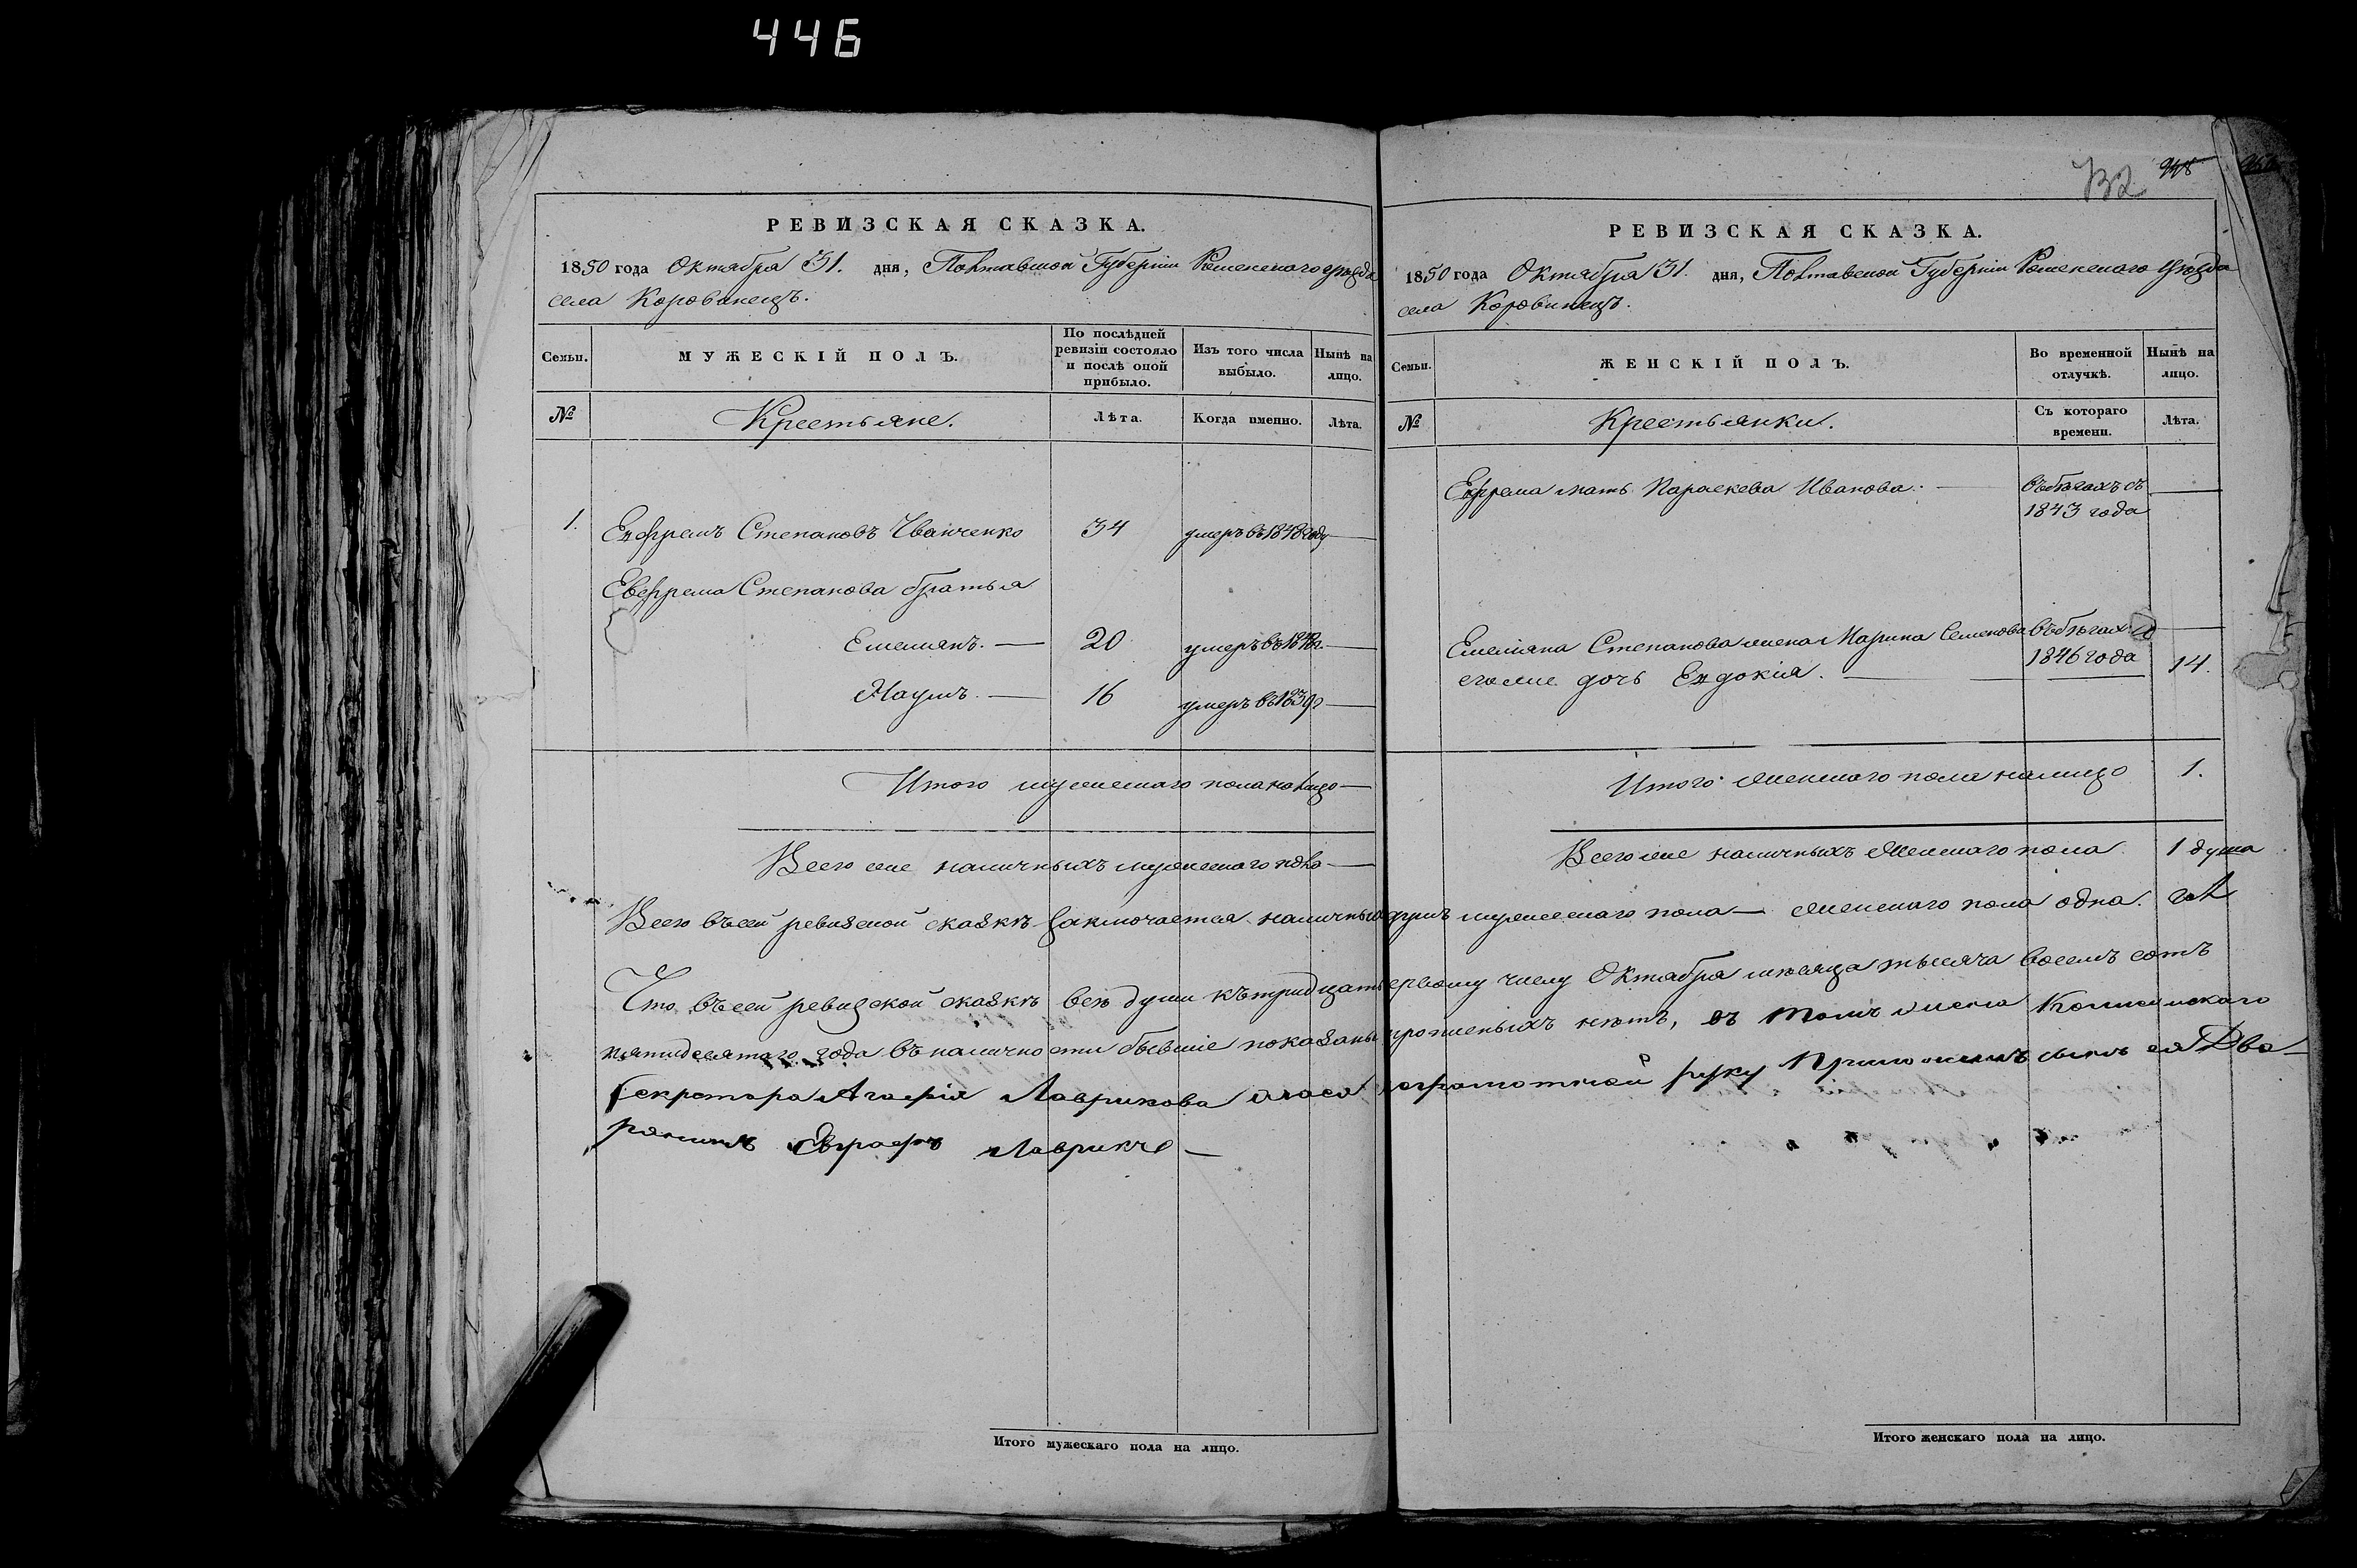 446
732
РЕВИЗСКАЯ СКАЗКА.
1850 года Октября 31. дня, Полтавской Губерніи Роменского уѣзда
села Коровинецъ.
Семьи. МУЖЕСКІЙ ПОЛЪ. По послѣдней ревизіи состояло и послѣ оной прибыло. Изъ того числа выбыло. Нынѣ на лицо.
№ Крестьяне. Лѣта. Когда именно. Лѣта.
1. Ефремъ Степановъ Чванченко 34 умеръ въ 1848 году —
Евфрема Степанова братья
Емелиянъ. — 20 умеръ въ —
Наумъ. — 16 умеръ въ —
Итого мужескаго пола налицо —
Всего же наличныхъ мужескаго пола —
РЕВИЗСКАЯ СКАЗКА.
1850 года Октября 31. дня, Полтавской Губерніи Роменского уѣзда
села Коровинецъ.
Семьи. ЖЕНСКІЙ ПОЛЪ. Во временной отлучкѣ. Нынѣ на лицо.
№ Крестьянки. Съ котораго времени. Лѣта.
Ефрема мать Параскева Иванова. — въ бѣгахъ съ —
1843 года
Емелияна Степанова жена Марина Семенова въ бѣгахъ —
1846 года
его же дочь Евдокія. — 14.
Итого женскаго пола налицо 1.
Всего же наличныхъ женскаго пола 1 душа
Всего въ сей ревизской сказкѣ заключается наличныхъ душъ мужескаго пола — женскаго пола одна.
Что въ сей ревизской сказкѣ всѣ души къ тридцать первому числу Октября месяца тысяча восемь сотъ
пятидесятаго года въ наличности бывшіе показаны прописныхъ нѣтъ, въ томъ
Секретаря Лаврикова неграмотной руку приложилъ сынъ ея Дво-
рянинъ Лаврикъ —
Итого мужескаго пола на лицо.
Итого женскаго пола на лицо.